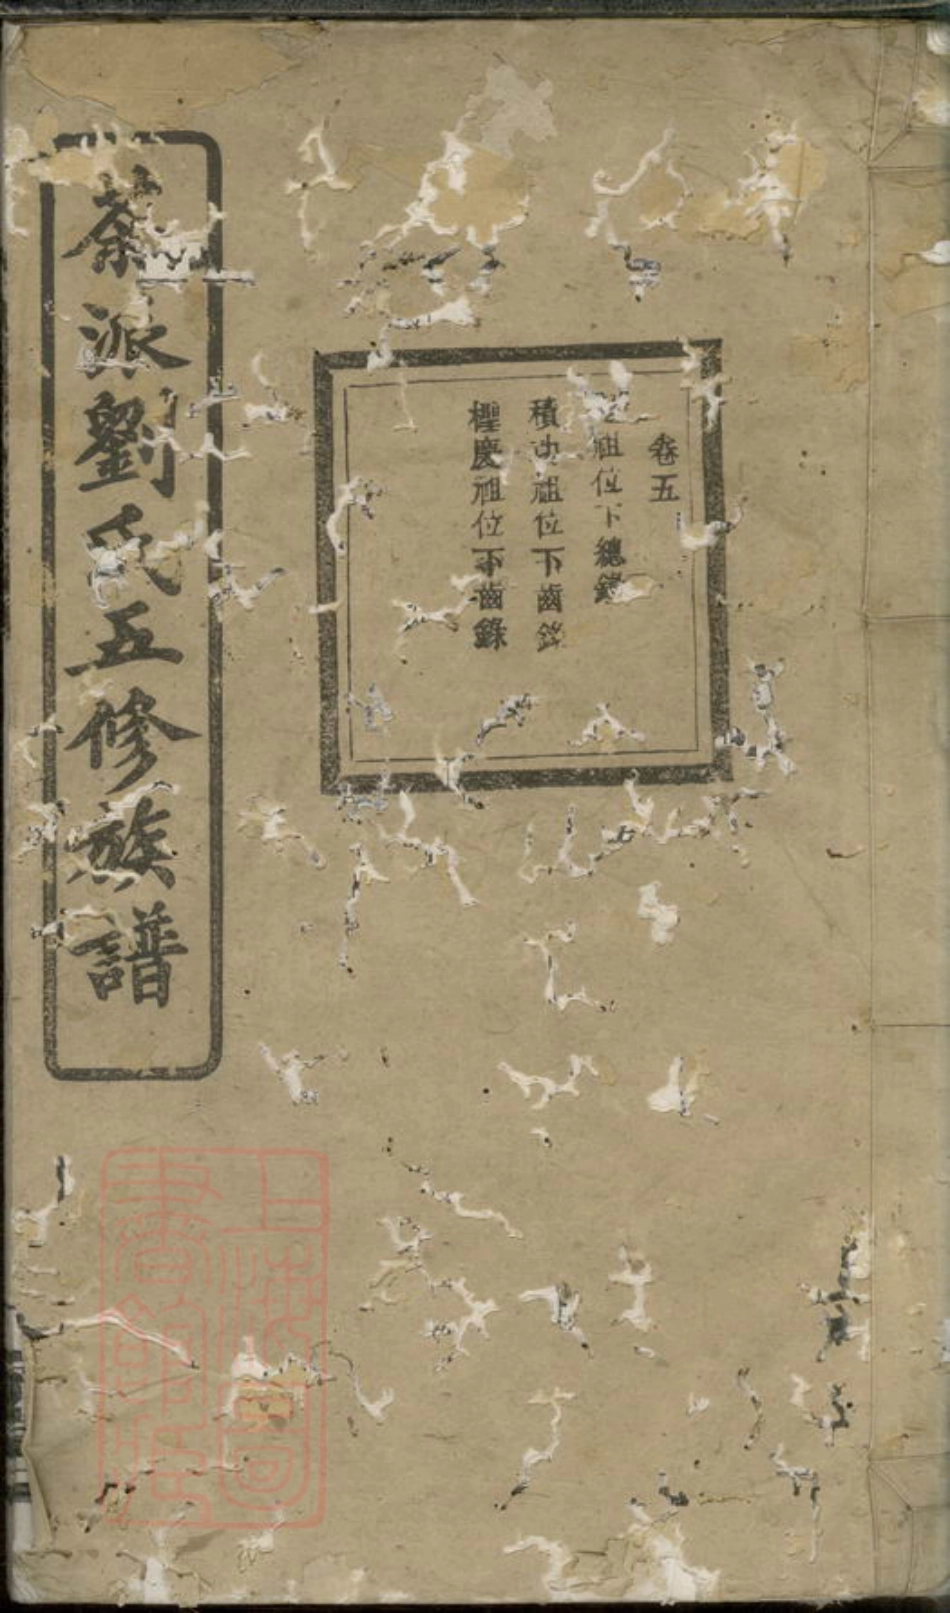 卷五
祖位下總錄
積功祖位下齒錄
檉慶祖位下齒錄
茶派劉氏五修族譜
上海圖書館藏